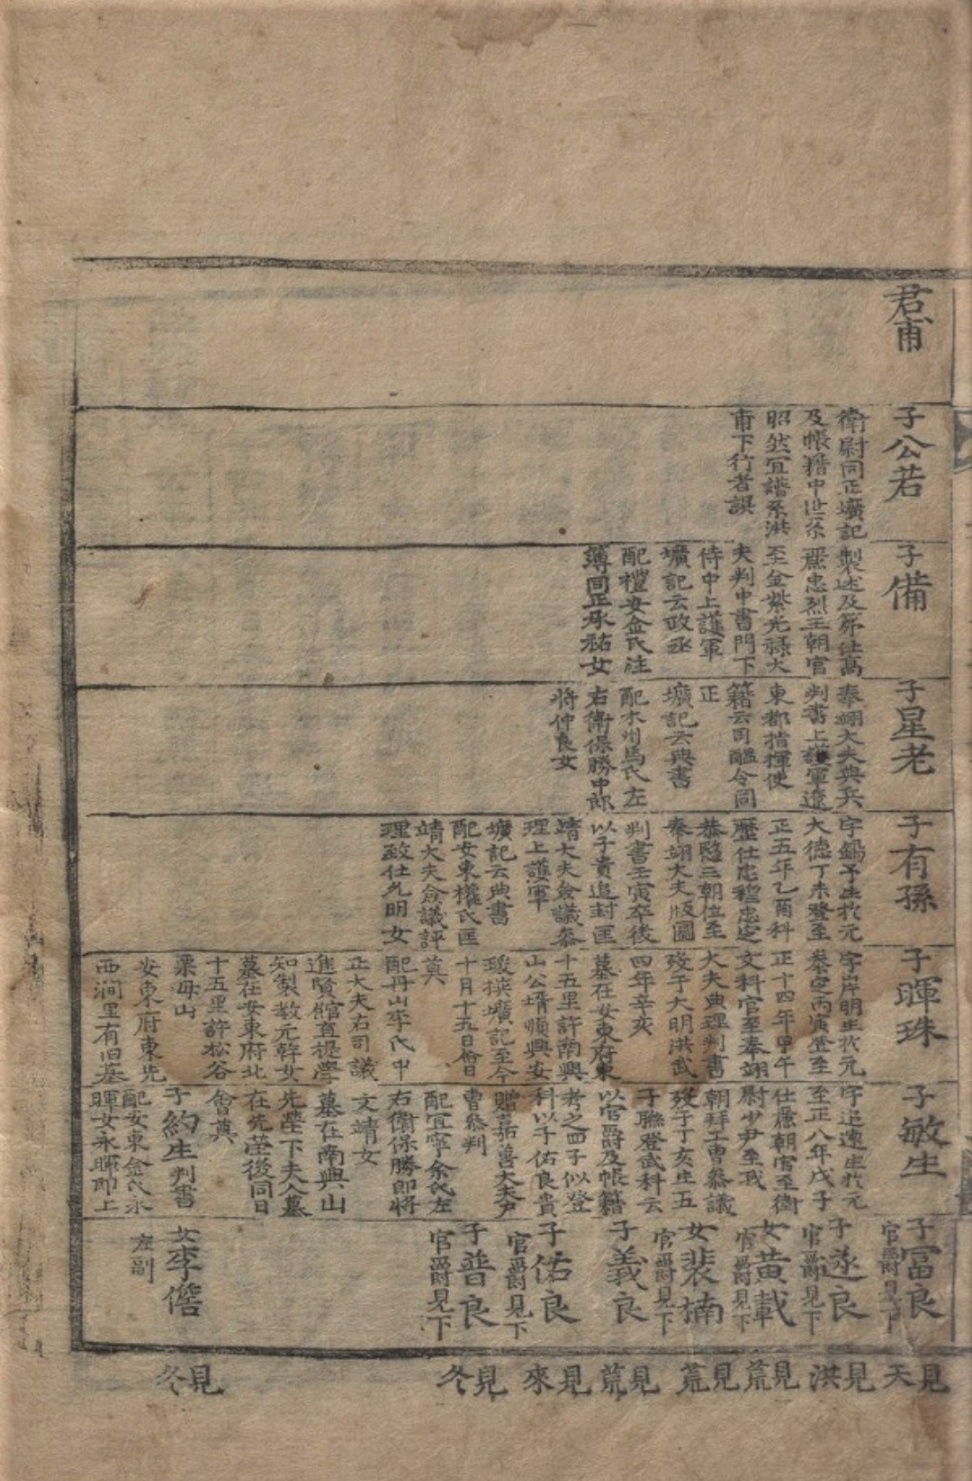 君甫
子公若
衛尉同正壙記
及帳籍中世系
昭然宜譜系洪
甫下行者誤
子備
製述及第仕高
麗忠烈王朝官
至金紫光祿大
夫判中書門下
侍中上護軍
壙記云政丞
配禮安金氏注
簿同正承祐女
子星老
奉翊大夫典兵
判書上護軍遼
東都指揮使
籍云司醞令同
正
壙記云典書
配木州馬氏左
右衛保勝中郎
將仲良女
子有孫
大德丁未登至
正五年乙酉科
歷仕忠穆忠定
恭愍三朝位至
奉翊大夫版圖
判書壬寅卒後
以子貴追封匡
靖大夫僉議叅
理上護軍
壙記云典書
配安東權氏匡
靖大夫僉議評
理致仕允明女
子暉珠
字岸明生於元
泰定丙寅登至
正十四年甲午
文科官至奉翊
大夫典理判書
歿于大明洪武
四年辛亥
墓在安東府東
十五里許南興
山公壻順興安
瑗撰壙記至今
十月十五日會
奠
配丹山李氏中
正大夫右司議
進賢館直提學
知製敎元幹女
墓在安東府北
十五里許松谷
栗母山
安東府東先
西澗里有旧基
子敏生
字追遠生於元
至正八年戊子
仕麗朝官至衛
尉少尹至我
朝拜工曹叅議
歿于丁亥生五
子聯登武科云
以官爵及帳籍
考之四子似登
科以子佑良貴
贈嘉善大夫尹
曹叅判
配宜寧余氏左
右衛保勝郎將
文靖女
墓在南興山
先塋下夫人墓
在先塋後同日
會奠
子約生判書
配安東金氏永
暉女永暉卽上
子富良
官爵見下
子遂良
官爵見下
女黃載
官爵見下
女裴楠
官爵見下
子義良
子佑良
官爵見下
子普良
官爵見下
女李偕
左副
見天
見洪
見荒
見荒
見荒
見來
見冬
見冬